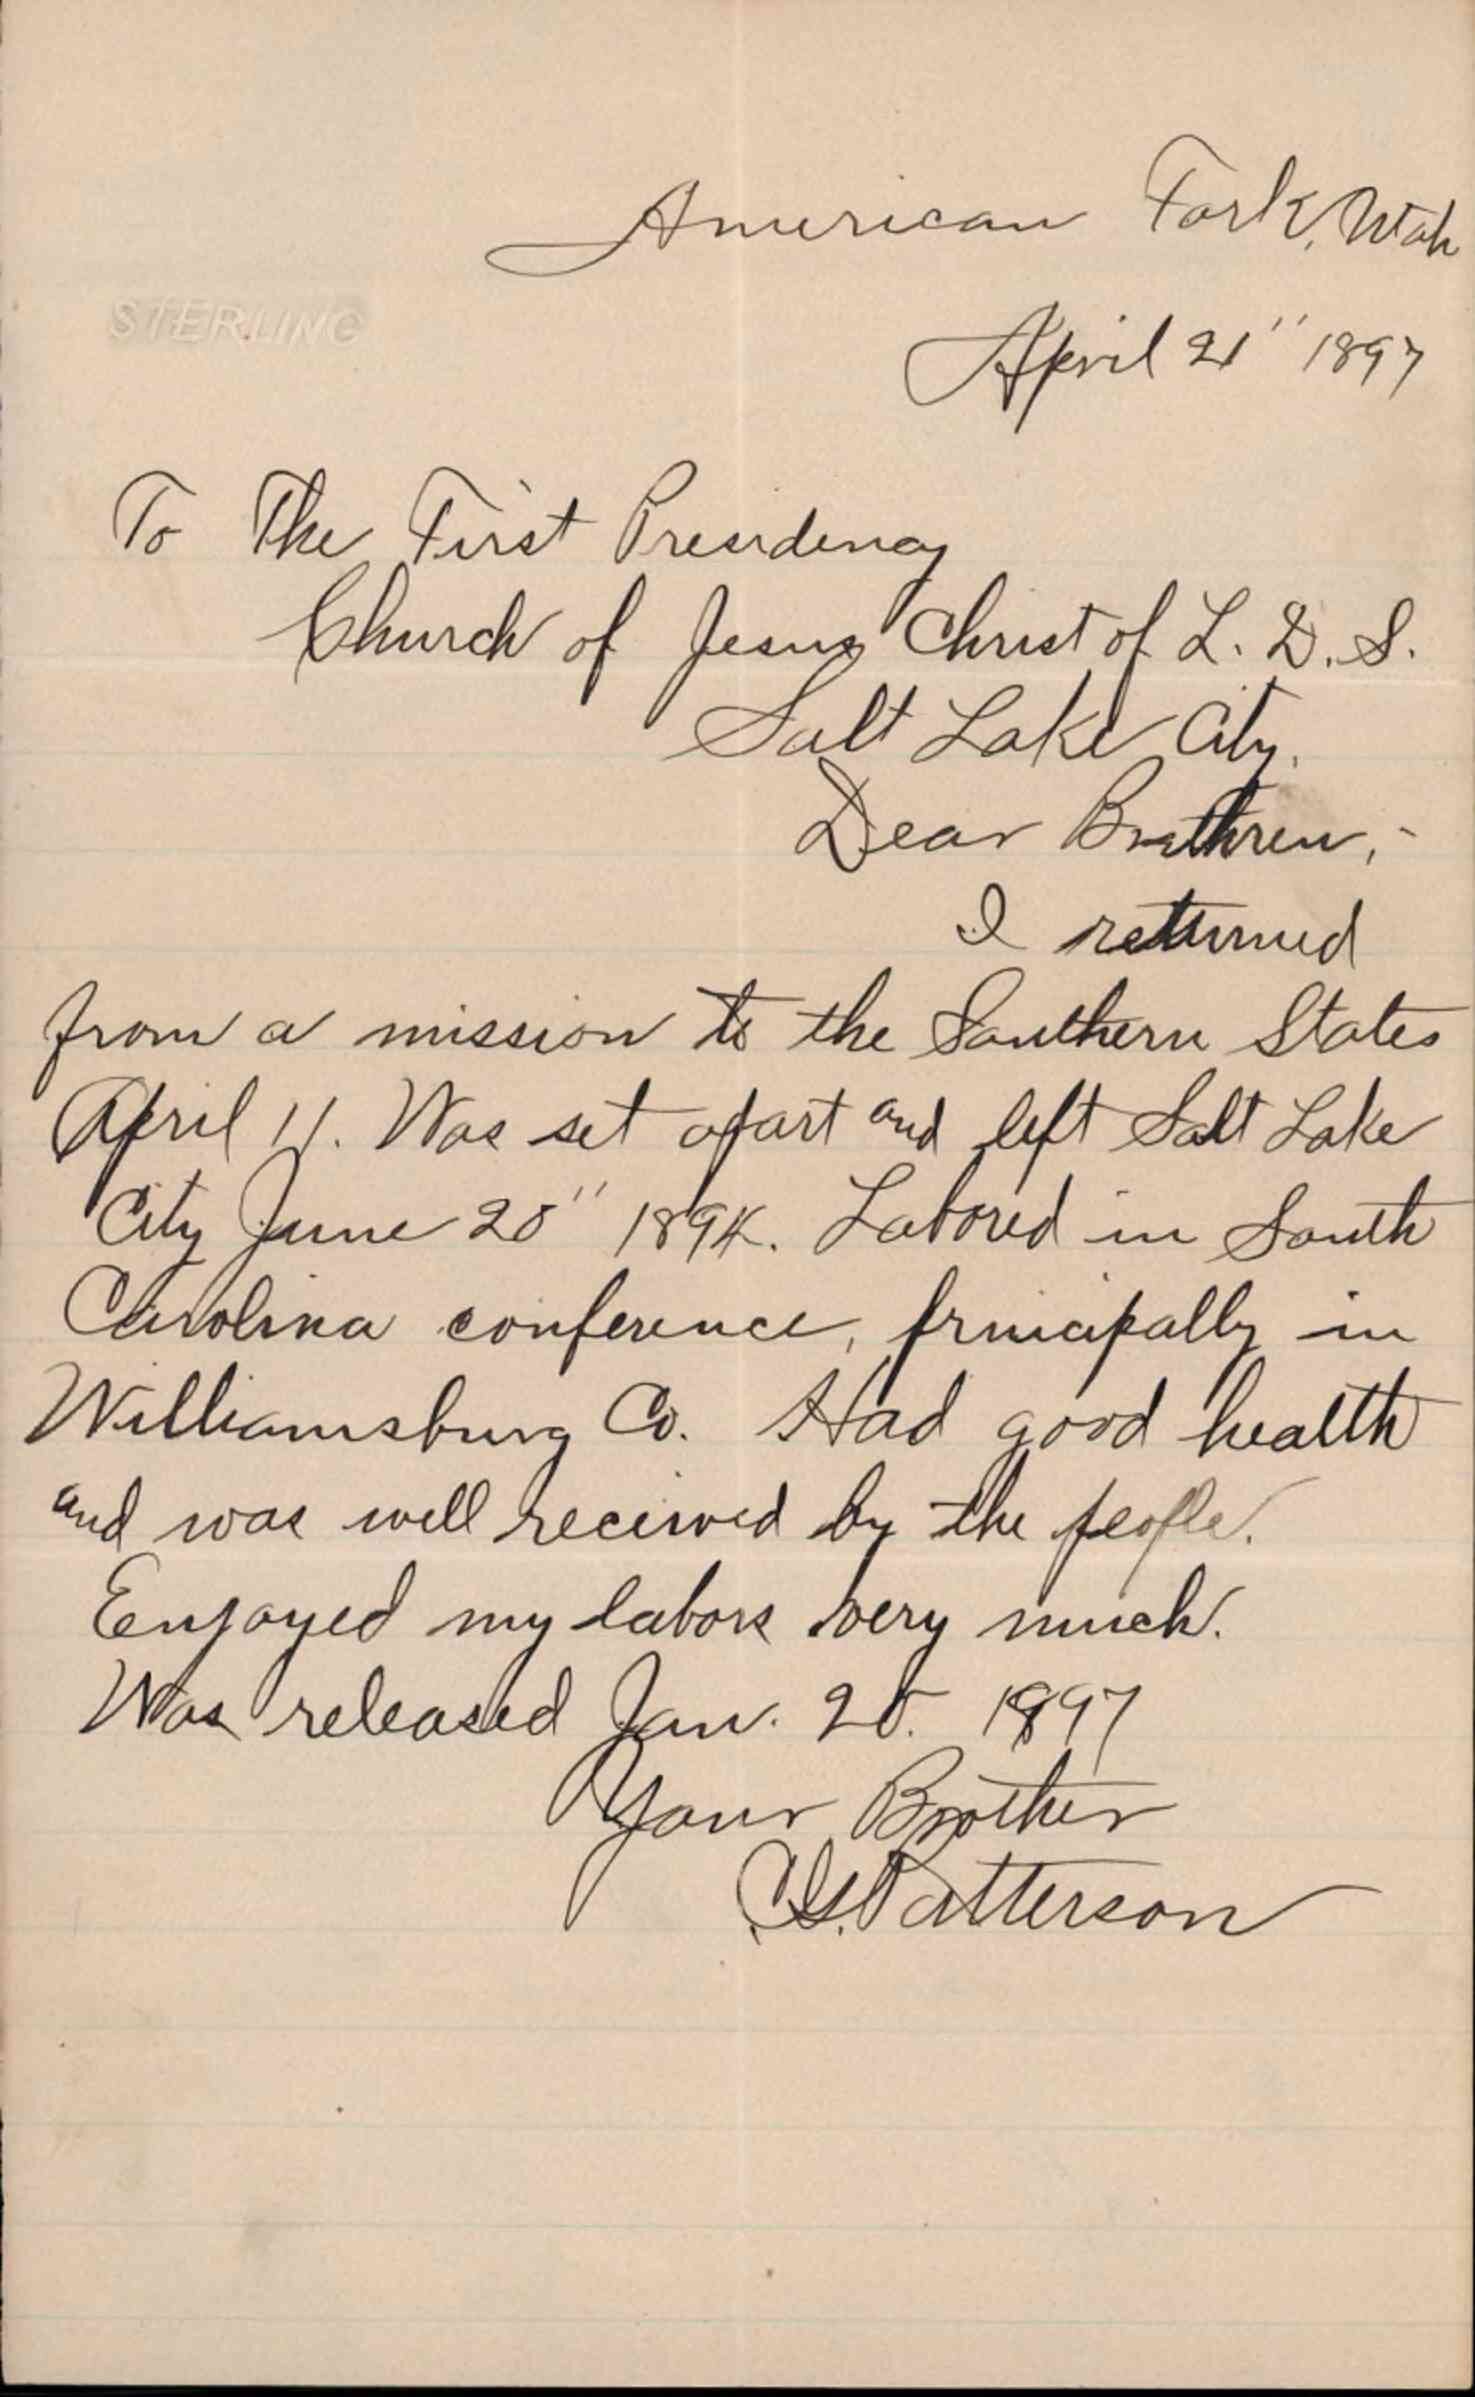 American Fork, Utah
STERLING
April 21" 1897
To The First Presidency
Church of Jesus Christ of L. D. S.
Salt Lake City.
Dear Brethren,-
I returned
from a mission to the Southern States
April 11. Was set apart and left Salt Lake
City June 1894. Labored in South
Carolina conference, principally in
Williamsburg Co. Had good health
and was well received by the people.
Enjoyed my labors very much.
Was released Jan. 1897
Your Brother
Patterson